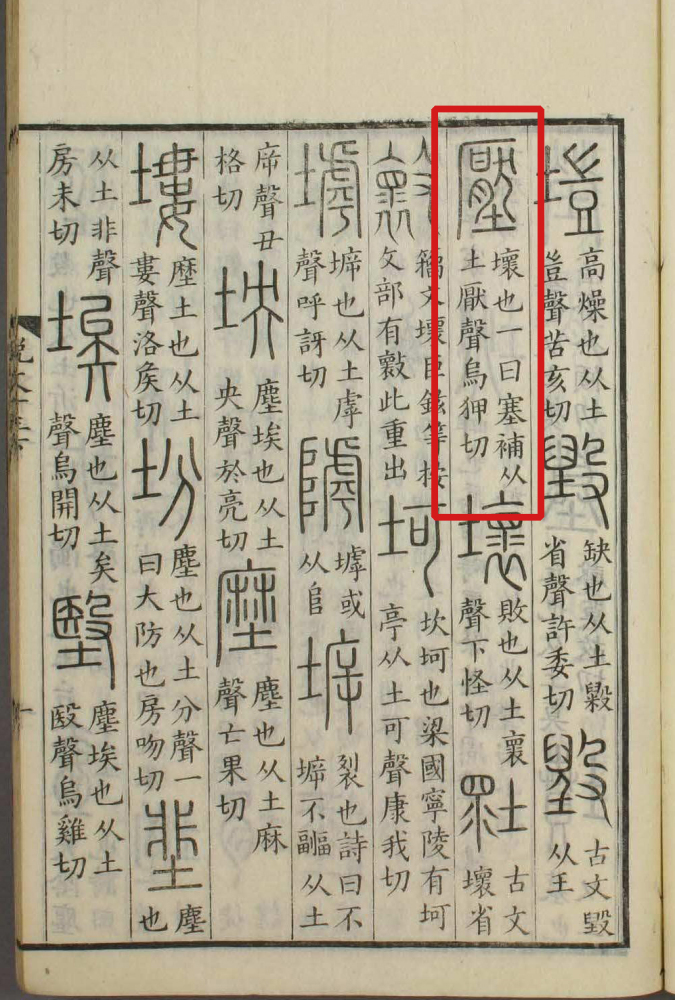 塏高燥也从土豈聲苦亥切毀缺也从土毇省聲許委切古文毀从王
壓壞也一曰塞補从土厭聲烏狎切壞敗也从土褱聲下怪切𡊣古文壞省
𣀩籒文壞臣鉉等按攴部有𣀩此重出坷坎坷也梁國寧陵有坷亭从土可聲康我切
㙤𡍩也从土虖聲呼訝切㙤或从𨸏𡍩裂也詩曰不𡍩不疈从土
㡿聲丑格切坱塵埃也从土央聲於亮切塺塵也从土麻聲亡果切
塿塺土也从土婁聲洛矦切坋塵也从土分聲一曰大防也房吻切𡋙塵也
从土非聲房未切埃塵也从土矣聲烏開切𡑞塵埃也从土殹聲烏雞切